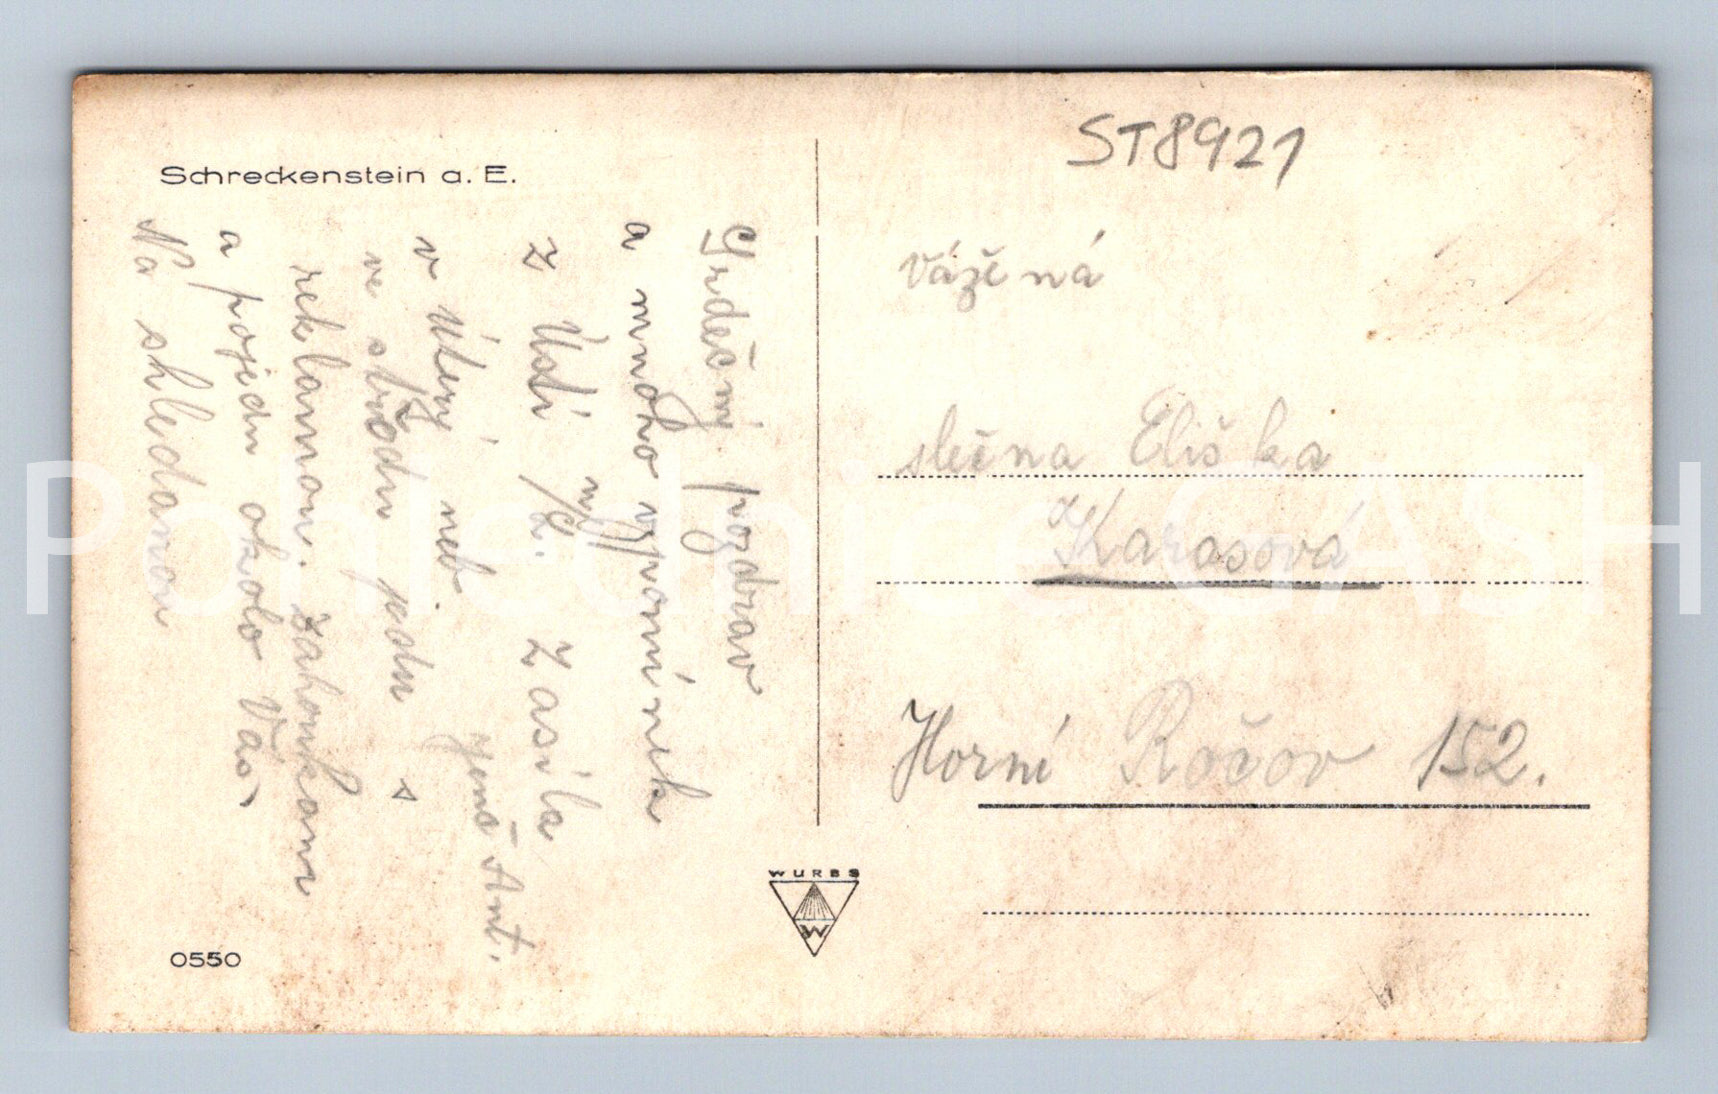 Schreckenstein a. E.
Srdečný pozdrav
a mnoho vzpomínek
z Ústí n/L. Zasílá
Ant.
v úterý neb.
ve středu jedu s
reklamou.
a pojedu okolo Vás,
Na shledanou
0550
WURBS
W
ST8921
Vážená
slečna Eliška
Karasová
Horní Ročov 152.
Pohlednice CASH